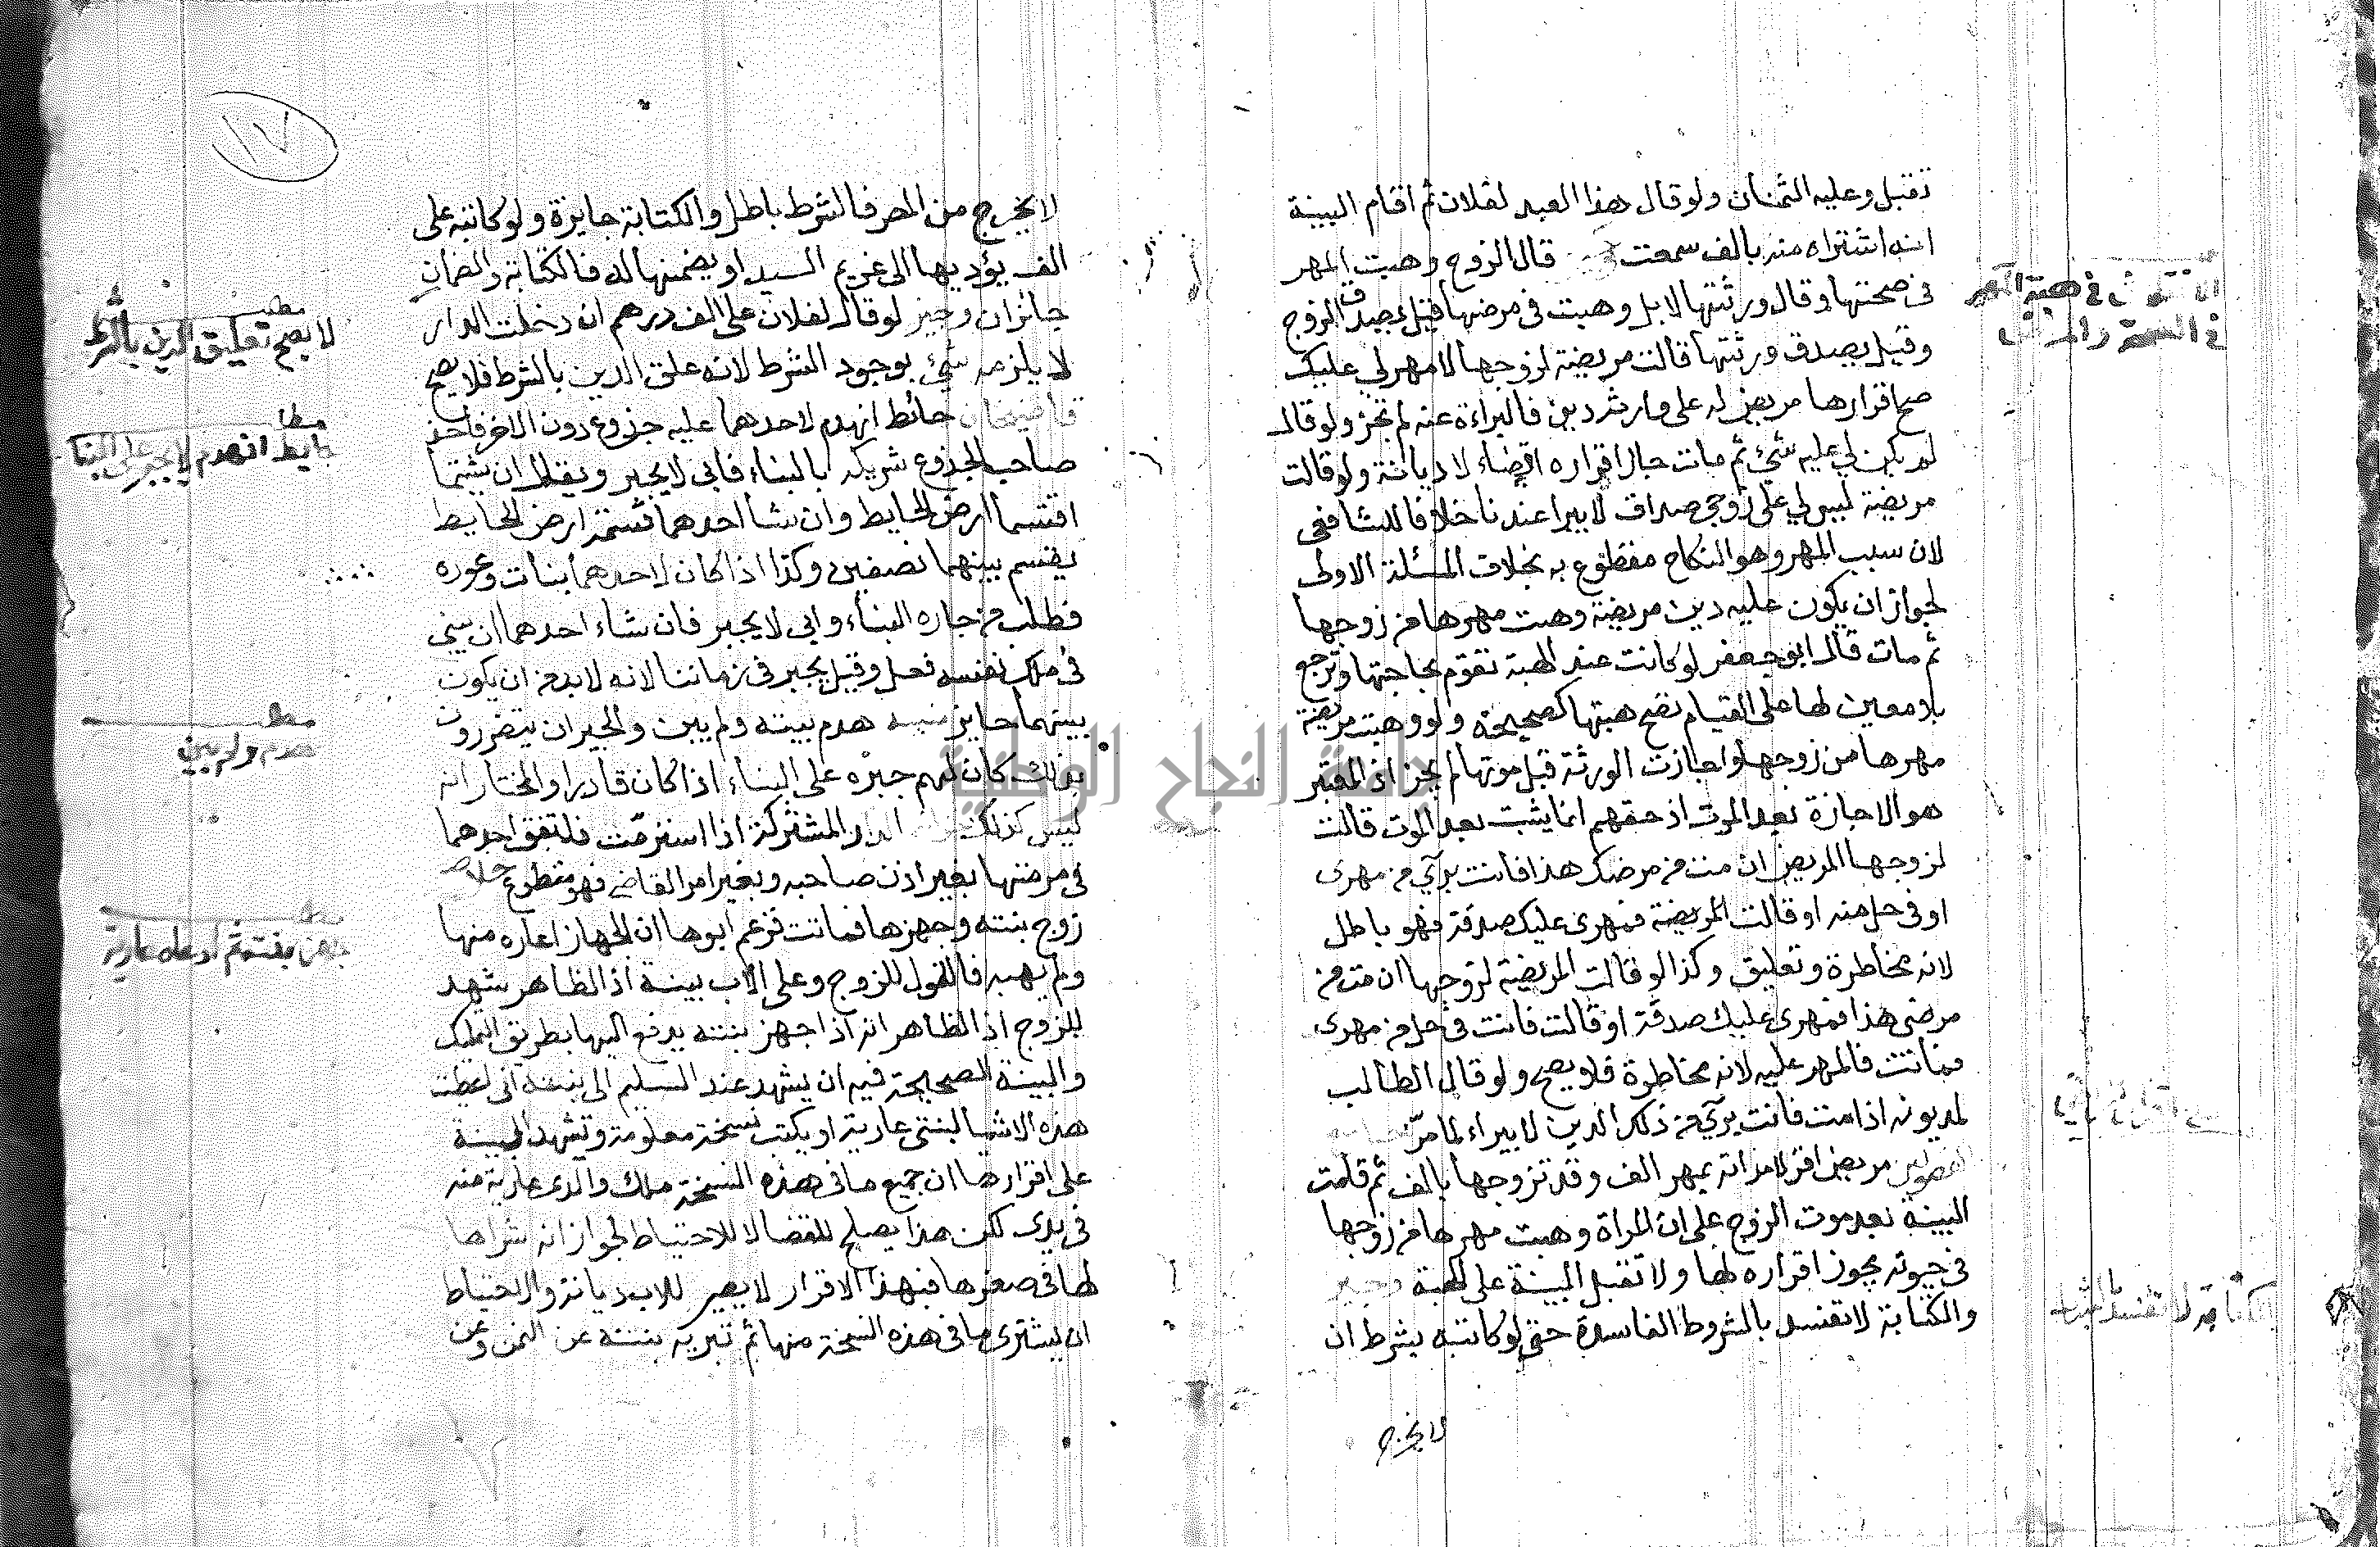 تقبل وعليه الثمنان ولو قال هذا العبد لفلان ثم اقام البينة
انه اشتراه منه بالف سمعت قال الزوج وهبت المهر
في صحتها وقال ورثتها لا بل وهبت في مرضها قيل يصدق الزوج
وقيل يصدق ورثتها قالت مريضة لزوجها لا مهر لي عليك
صح اقرارها مريض له على وارثه دين فابراءه عنه لم تجز ولو قال
لم يكن لي عليه شئ ثم مات جاز اقراره قضاء لا ديانة ولو قالت
مريضة ليس لي على زوجي صداق لا يبرا عندنا خلافا للشافعي
لان سبب المهر وهو النكاح مقطوع به بخلاف المسئلة الاولى
لجواز ان يكون عليه دين مريضة وهبت مهرها من زوجها
ثم مات قال ابو جعفر لو كانت عند الهبة تقوم بحاجتها وترجع
بلا معين لها على القيام تصح هبتها كصحيحة ولو وهبت مريضة
مهرها من زوجها واجازت الورثة قبل موتها لم يجز اذ المعتبر
هو الاجازة بعد الموت اذ حقهم انما يثبت بعد الموت قالت
لزوجها المريض ان مت من مرضك هذا فانت بريء من مهري
او في حل منه او قالت المريضة فمهري عليك صدقة فهو باطل
لانه مخاطرة وتعليق وكذا لو قالت المريضة لزوجها ان مت من
مرضي هذا فمهري عليك صدقة او قالت فانت في حل من مهري
فماتت فالمهر عليه لانه مخاطرة فلا يصح ولو قال الطالب
لمديونه اذا مت فانت بريء من ذلك الدين لا يبراء لما مرّ
مريض اقر لامراته بمهر الف وقد تزوجها بالف ثم قامت
البينة بعد موت الزوج على ان المراة وهبت مهرها من زوجها
في حيوته يجوز اقراره لها ولا تقبل البينة على الهبة
والكتابة لا تفسد بالشروط الفاسدة حتى لو كاتبه بشرط ان
لا يخرج
في هبة المهر
في الصحة والمرض
١٧
لا يخرج من المصر فالشرط باطل والكتابة جايزة ولو كاتبه على
الف يؤديها الى غريم السيد او يضمنها له فالكتابة والضمان
جائزان وجيز لو قال لفلان علي الف درهم ان دخلت الدار
لا يلزمه شئ بوجود الشرط لانه علق الدين بالشرط فلا يصح
قاضيخان حائط انهدم لاحدهما عليه جذوع دون الاخر فاخذ
صاحب الجذوع شريكه بالبناء فابى لا يجبر ويقال ان شئتما
اقتسما ارض الحايط وان شا احدهما قسمة ارض الحايط
يقسم بينهما نصفين وكذا اذا كان لاحدهما بنات وعوره
فطلب من جاره البناء وابى لا يجبر فان شاء احدهما ان يبني
في ملك نفسه فعل وقيل يجبر في زماننا لانه لا بد من ان يكون
بينهما حايز هدم بيته ولم يبن والجيران يتضررون
بذلك كان لهم جبره على البناء اذا كان قادرا والمختار انه
ليس كذلك الدار المشتركة اذا استرمت فانفق احدهما
في مرمتها بغير اذن صاحبه وبغير امر القاضي فهو متطوع خلاصه
زوج بنته وجهزها فماتت فزعم ابوها ان الجهاز اعاره منها
ولم يهبه فالقول للزوج وعلى الاب بينة اذ الظاهر شهد
للزوج اذ الظاهر انه اذا جهز بنته يدفع اليها بطريق التمليك
والبينة الصحيحة فيه ان يشهد عند التسليم الى بنته اني اعطيت
هذه الاشيا لبنتي عارية او يكتب نسخة معلومة وتشهد البينة
على اقرارها ان جميع ما في هذه النسخة ملك والدي عارية منه
في يدي لكن هذا يصلح للقضا لا للاحتياط لجواز انه شراها
لها في صغرها فبهذا الاقرار لا يصير للاب ديانة والاحتياط
ان يشتري ما في هذه النسخة منها ثم تبريه بنته عن الثمن وعن
مطلب
لا يصح تعليق الدين بالشرط
مطلب
حايط انهدم لا يجبر على البنا
مطلب
هدم ولم يبن
مطلب
جهز بنته ثم ادعاه عارية
جامعة النجاح الوطنية